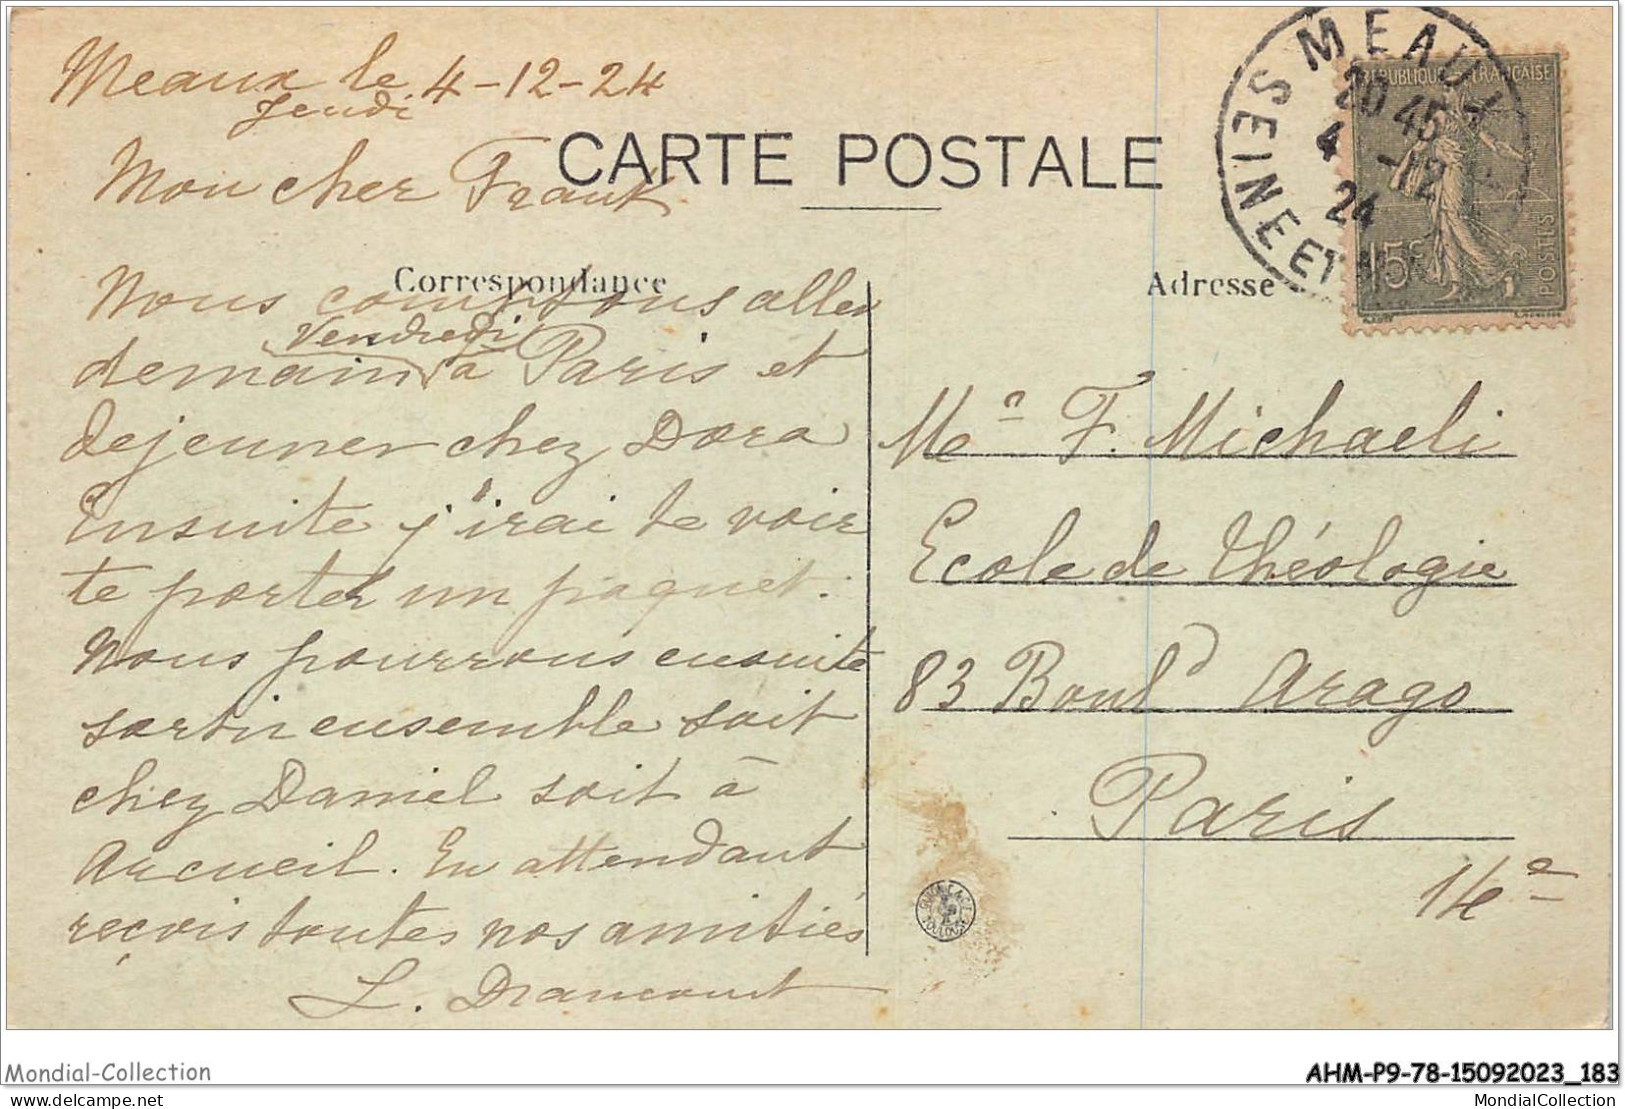 Meaux le 4-12-24
Jeudi
CARTE POSTALE
Mon cher Frank
Correspondance
Nous comptons aller
Vendredi
demain à Paris et
dejeuner chez Dora
Ensuite j'irai te voir
te porter un paquet.
Nous pourrons ensuite
sortir ensemble soit
chez Daniel soit à
Arcueil. En attendant
reçois toutes nos amitiés
L. Drancourt
MEAUX
SEINE ET M
20 45
4 -12
24
REPUBLIQUE FRANÇAISE
15c
POSTES
Adresse
F. Michaeli
Ecole de Théologie
83 Boul d Arago
Paris
14e
TOULOUSE
Mondial-Collection
AHM-P9-78-15092023_183
delcampe.net
MondialCollection